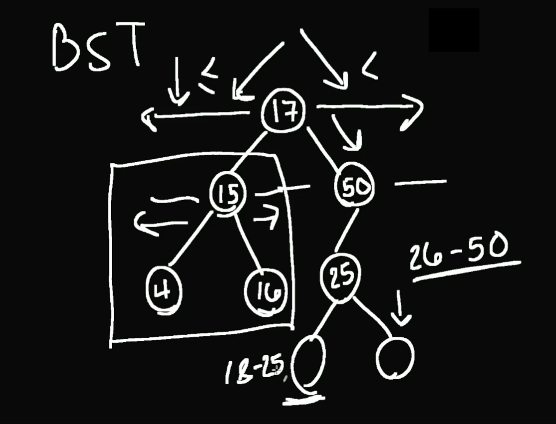 BST
≤
<
17
15
50
4
16
25
26-50
18-25